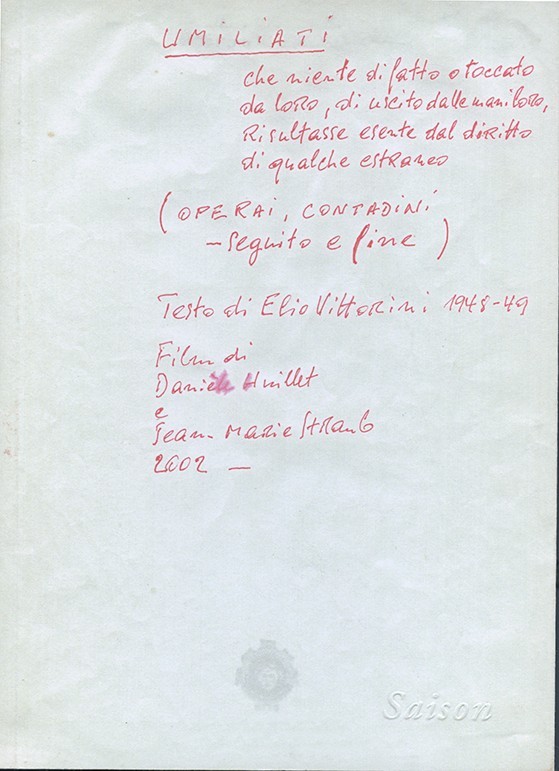 UMILIATI
che niente di fatto o toccato
da loro, di uscito dalle mani loro,
risultasse esente dal diritto
di qualche estraneo
(OPERAI, CONTADINI
— seguito e fine)
Testo di Elio Vittorini 1948-49
Film di
Danièle Huillet
e
Jean-Marie Straub
2002 —
Saison